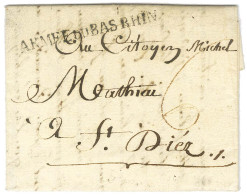 ARMÉE DU BAS RHIN
Au Citoyen Michel
Mouthieu
A St. Diéz